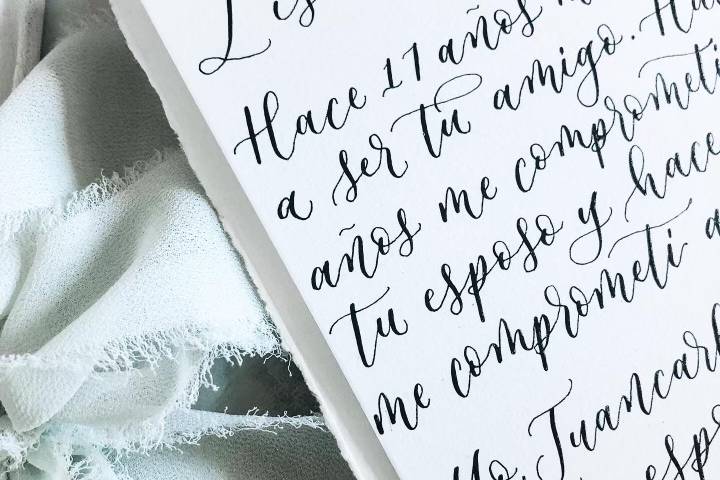 Hace 11 años m
a ser tu amigo. Ha
años me comprometí
tu esposo y hace
me comprometí a
Yo, Juancarl
espo